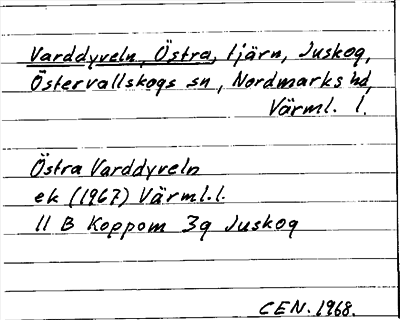 Varddyveln, Östra, tjärn, Juskog,
Östervallskogs sn, Nordmarks hd,
Värml. l.
Östra Varddyveln
ek (1967) Värml.l.
11 B Koppom 3g Juskog
CEN. 1968.